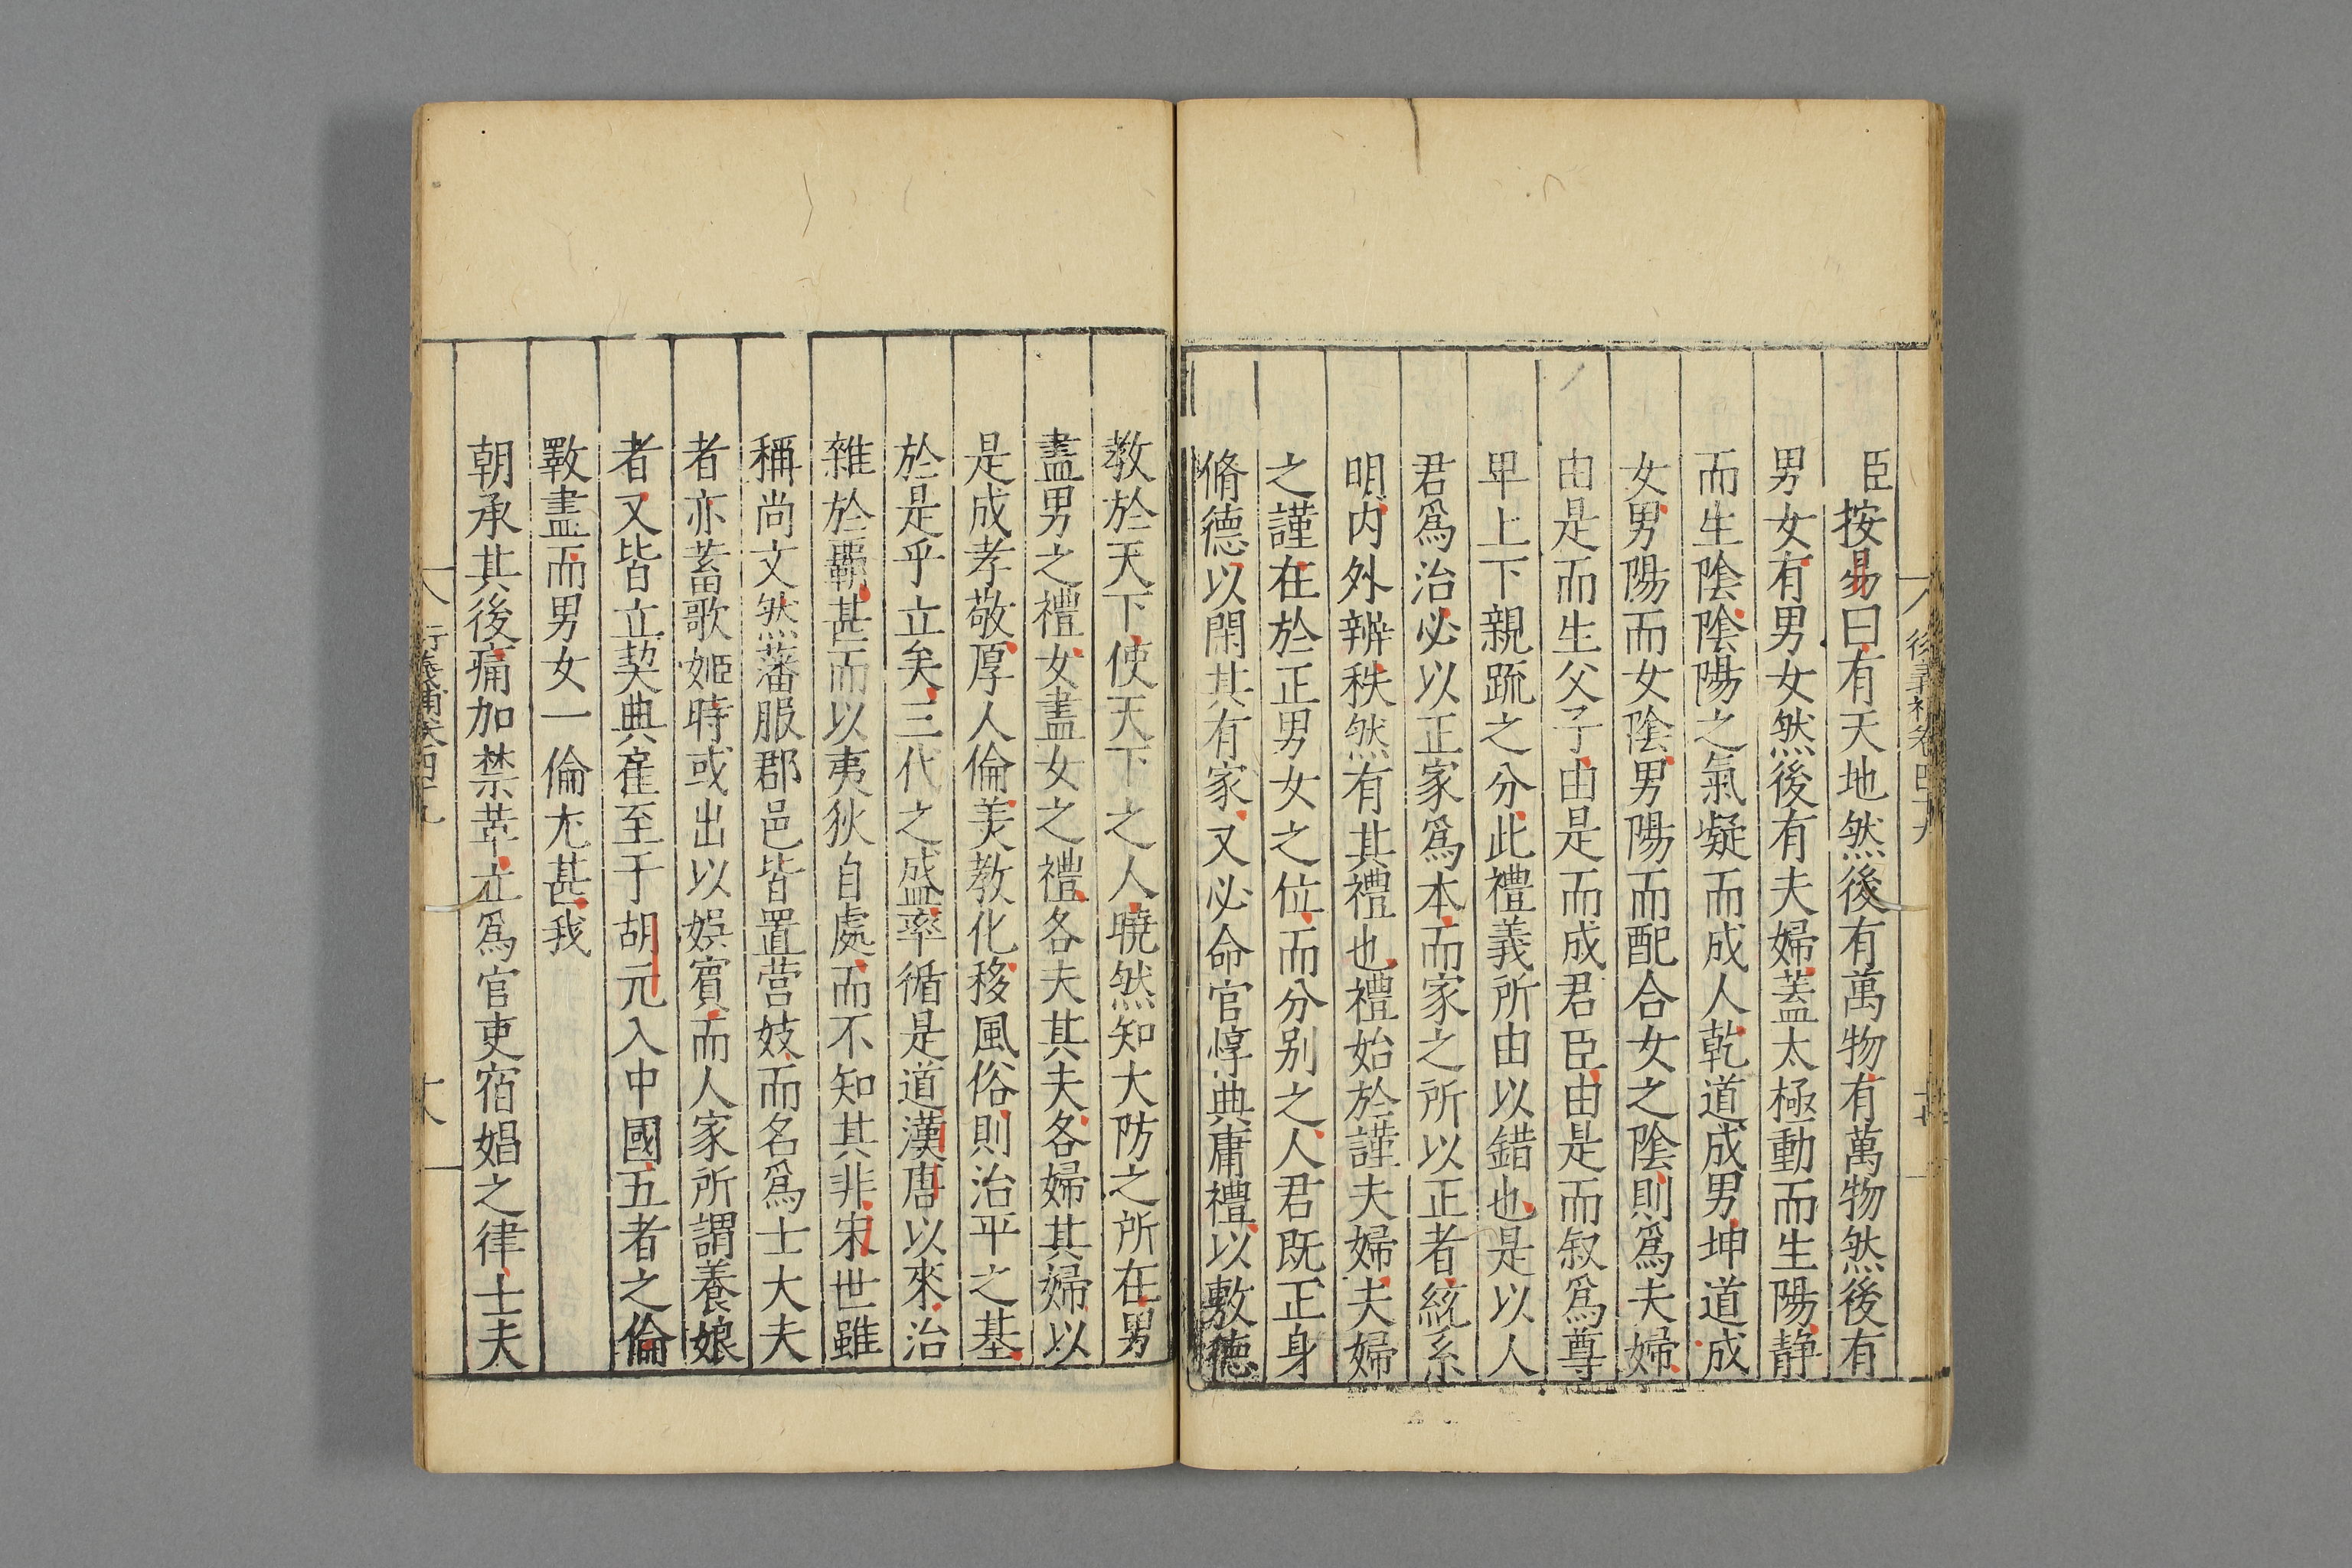 臣按易曰有天地然後有萬物有萬物然後有
男女有男女然後有夫婦蓋太極動而生陽靜
而生陰陰陽之氣凝而成人乾道成男坤道成
女男陽而女陰男陽而配合女之陰則爲夫婦
由是而生父子由是而成君臣由是而叙爲尊
卑上下親疏之分此禮義所由以錯也是以人
君爲治必以正家爲本而家之所以正者統系
明内外辨秩然有其禮也禮始於謹夫婦夫婦
之謹在於正男女之位而分别之人君既正身
脩德以閑其有家又必命官惇典庸禮以敷德
教於天下使天下之人曉然知大防之所在男
盡男之禮女盡女之禮各夫其夫各婦其婦以
是成孝敬厚人倫美教化移風俗則治平之基
於是乎立矣三代之盛率循是道漢唐以來治
雜於覇甚而以夷狄自處而不知其非宋世雖
稱尚文然藩服郡邑皆置营妓而名爲士大夫
者亦蓄歌姬時或出以娯賓而人家所謂養娘
者又皆立契典雇至于胡元入中國五者之倫
斁盡而男女一倫尤甚我
朝承其後痛加禁革立爲官吏宿娼之律士夫